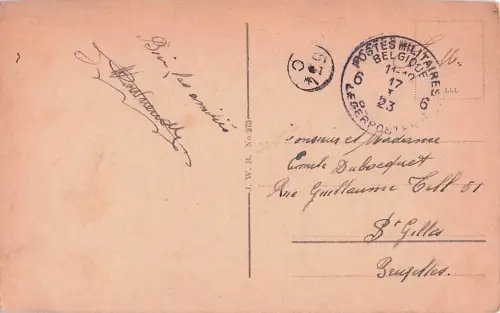 Bien des amitiés
5
C
POSTES MILITAIRES
BELGIQUE
6 6
17
23
LEGERPOSTERIJ
S. M.
J. W. B. No. 273
Monsieur et Madame
Emile Dubocquet
Rue Guillaume Tell 51
St Gilles
Bruxelles.